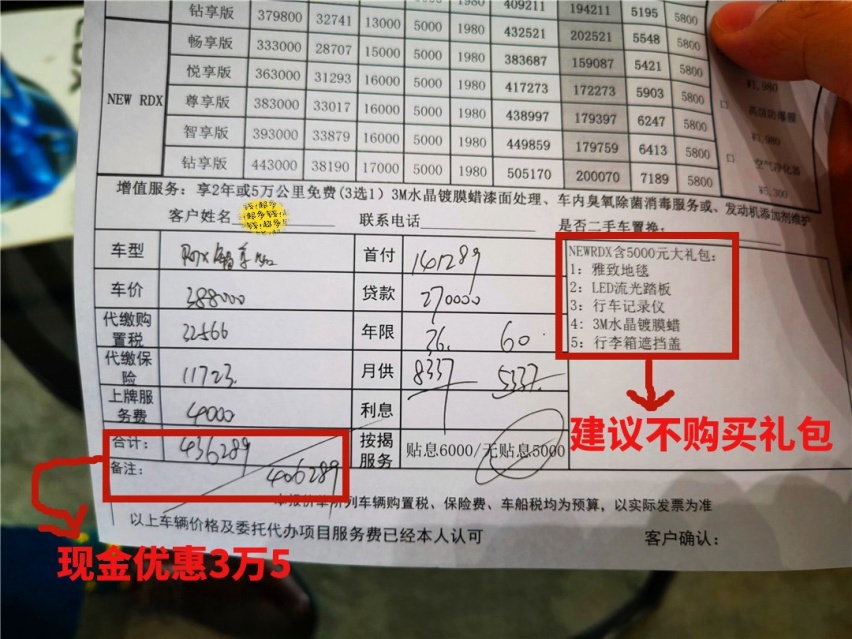 409211 194211 5195 5800
钻享版 379800 32741 13000 5000 1980 432521 202521 5548 5800
畅享版 333000 28707 15000 5000 1980 383687 159087 5421 5800
悦享版 363000 31293 16000 5000 1980 417273 172273 5903 5800
NEW RDX 尊享版 383000 33017 16000 5000 1980 438997 179397 6247 5800
智享版 393000 33879 16000 5000 1980 449859 179759 6413 5800
钻享版 443000 38190 17000 5000 1980 505170 200070 7189 5800
¥1,980
高级防爆膜
¥1,980
空气净化器
¥5,300
增值服务：享2年或5万公里免费(3选1) 3M水晶镀膜蜡漆面处理、车内臭氧除菌消毒服务或、发动机添加剂维护
客户姓名 联系电话 是否二手车置换：
车型 RDX 首付 141289
车价 388000 贷款 270000
代缴购置税 22566 年限 36. 60.
代缴保险 11723 月供 8337 5337
上牌服务费 4000 利息
合计： 436289 按揭服务 贴息6000/无贴息5000
备注： 406289
NEWRDX含5000元大礼包：
1：雅致地毯
2：LED流光踏板
3：行车记录仪
4：3M水晶镀膜蜡
5：行李箱遮挡盖
建议不购买礼包
本报价单所列车辆购置税、保险费、车船税均为预算，以实际发票为准
以上车辆价格及委托代办项目服务费已经本人认可 客户确认：
现金优惠3万5